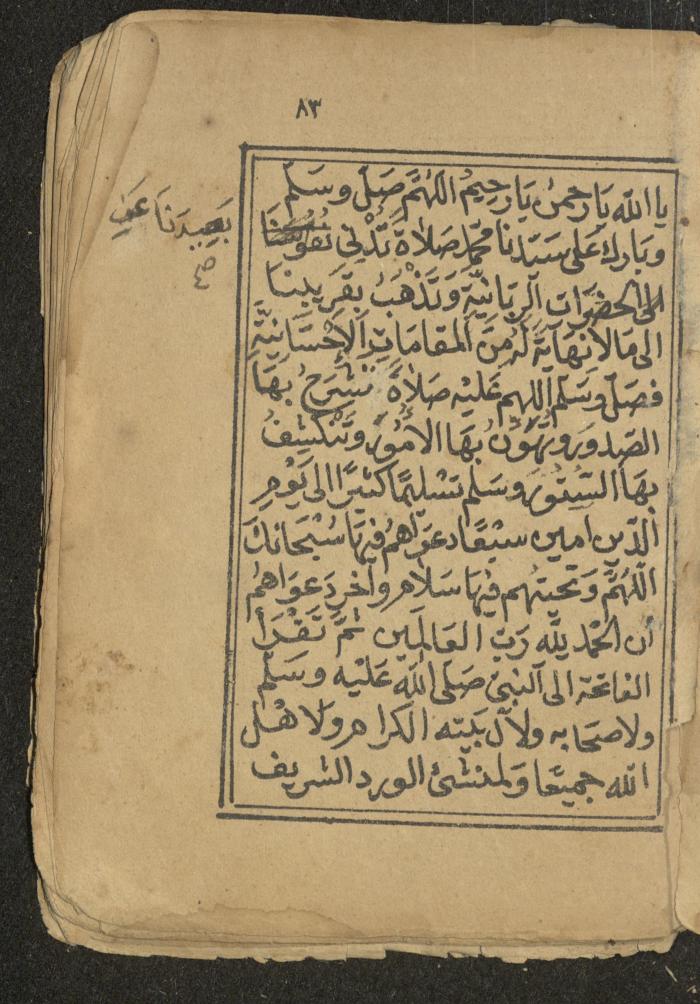 ٨٣
يا الله يَا رَحمنُ يَا رَحِيمُ اللّهُمَّ صَلّ وسَلّم
وَبَارِك عَلى سَيّدِنا محمّد صَلَاةً تُدْنِى
بَعِيدَنَا
صح
الى الحضَرَات الرّبّانِيّة وَتَذْهَبُ بِقَرِيبِنا
الى مَا لَا نِهَايَةَ لَهُ مِنَ المقامَاتِ الاِحْسَانِيّةِ
فصَلّ وسَلّم اللهم عَليْه صَلَاةً تشرَحُ بهَا
الصّدورَ وتهوّنُ بهَا الأمُورُ وتَنْكشِفُ
بهَا السّتورُ وسَلم تسْليمًا كثِيرًا الى يَوْمِ
الدّين امين سبْعًا دعوَاهُم فيهَا سُبْحَانكَ
اللّهُمَّ وَتحيتهُم فيهَا سَلام وآخر دَعوَاهُم
أن الحَمْد لِلّه رَبّ العَالمِين ثمَّ تَقْرَأ
الفاتحَة الى النبيّ صَلى الله عَليْه وسَلّم
ولاصحَابه ولآل بَيته الكرام ولاهْل
الله جميعًا وَلمنشئ الورد الشريف